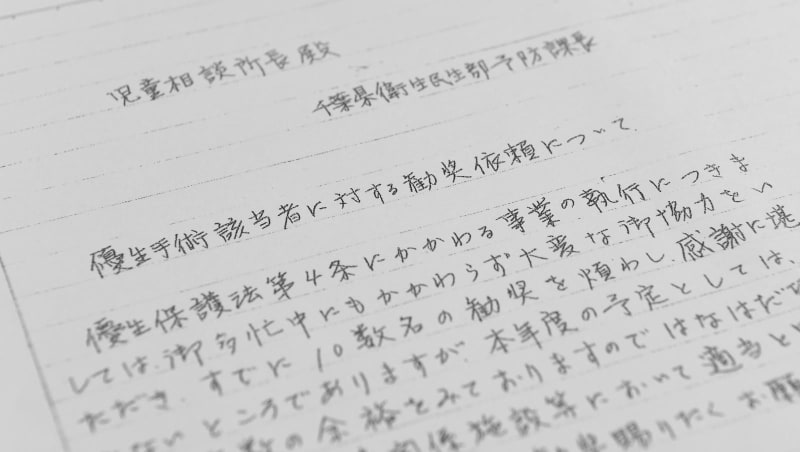 児童相談所長殿
千葉県衛生民生部予防課長
優生手術該当者に対する勧奨依頼について
優生保護法第4条にかかわる事業の執行につきま
しては、御多忙中にもかかわらず大変な御協力をい
ただき、すでに10数名の勧奨を煩わし、感謝に堪
ないところでありますが、本年度の予定としては、
数の余裕をみておりますのではなはだ
関係施設等において適当と
賜りたくお願